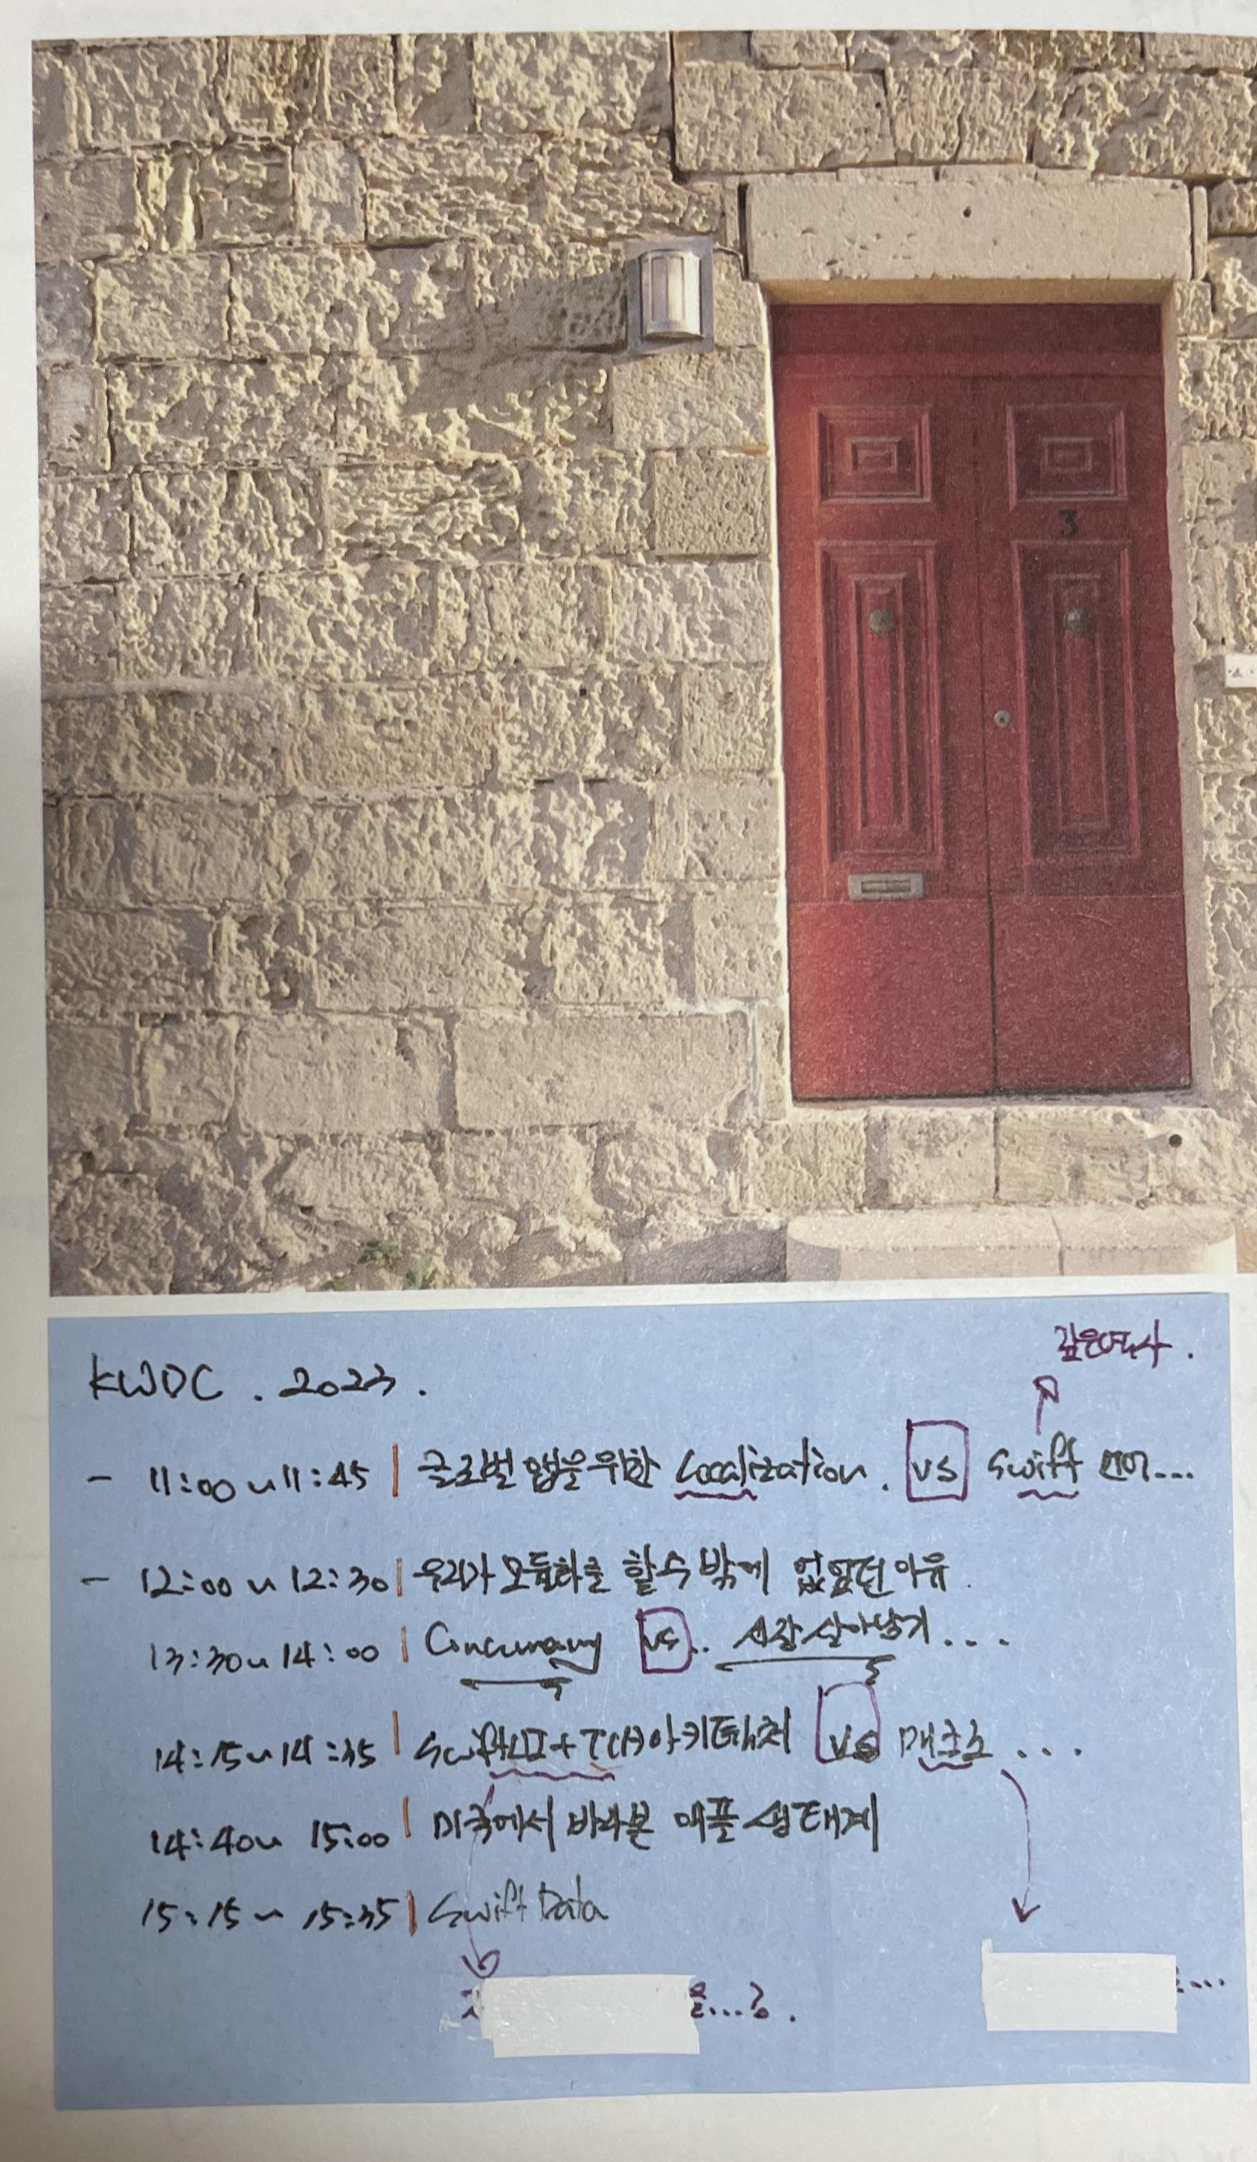 3
KWDC . 2023 .
깊은역사 .
- 11:00 ~ 11:45 | 글로벌 앱을 위한 Localization . VS Swift 언어...
- 12:00 ~ 12:30 | 우리가 모듈화를 할 수 밖에 없었던 이유.
13:30 ~ 14:00 | Concurrency VS.. 시장 살아남기 . . . .
14:15 ~ 14:35 | SwiftUI + TCA 아키텍쳐 VS 매크로 . . .
14:40 ~ 15:00 | 미국에서 바라본 애플 생태계
15:15 ~ 15:35 | Swift Data